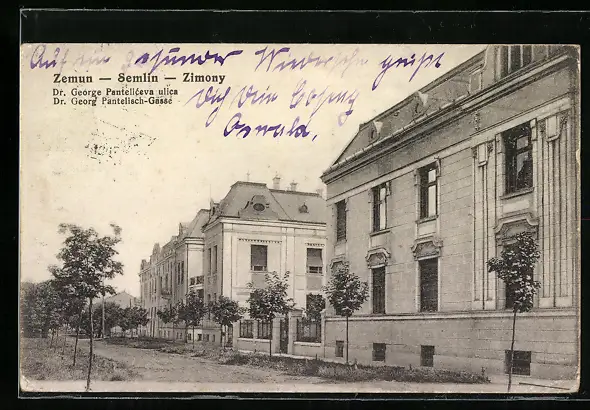 Auf ein gesunder Wiedersehn grüßt
Zemun — Semlin — Zimony
Dr. George Pantelićeva ulica
Dr. Georg Pantelisch-Gasse
Dich Dein
Oswald,